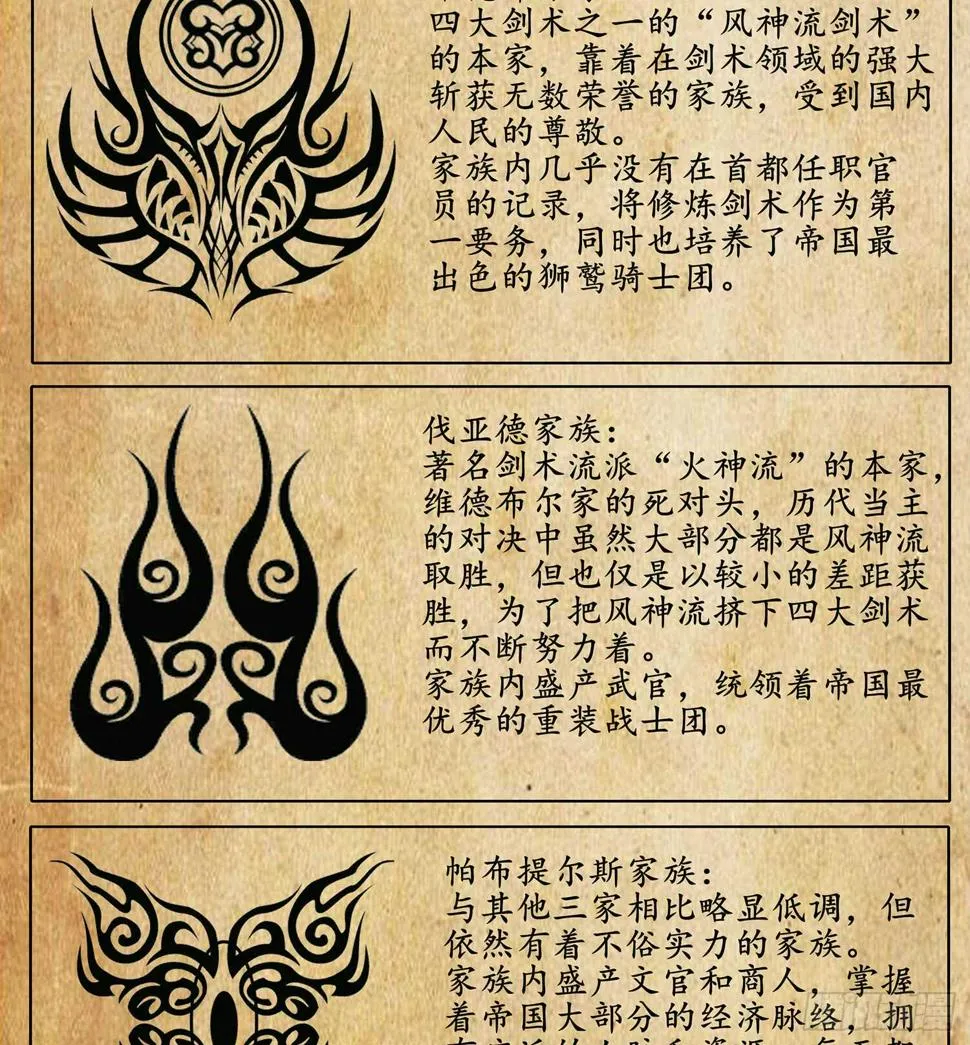 四大剑术之一的“风神流剑术”
的本家，靠着在剑术领域的强大
斩获无数荣誉的家族，受到国内
人民的尊敬。
家族内几乎没有在首都任职官
员的记录，将修炼剑术作为第
一要务，同时也培养了帝国最
出色的狮鹫骑士团。
伐亚德家族：
著名剑术流派“火神流”的本家，
维德布尔家的死对头，历代当主
的对决中虽然大部分都是风神流
取胜，但也仅是以较小的差距获
胜，为了把风神流挤下四大剑术
而不断努力着。
家族内盛产武官，统领着帝国最
优秀的重装战士团。
帕布提尔斯家族：
与其他三家相比略显低调，但
依然有着不俗实力的家族。
家族内盛产文官和商人，掌握
着帝国大部分的经济脉络，拥